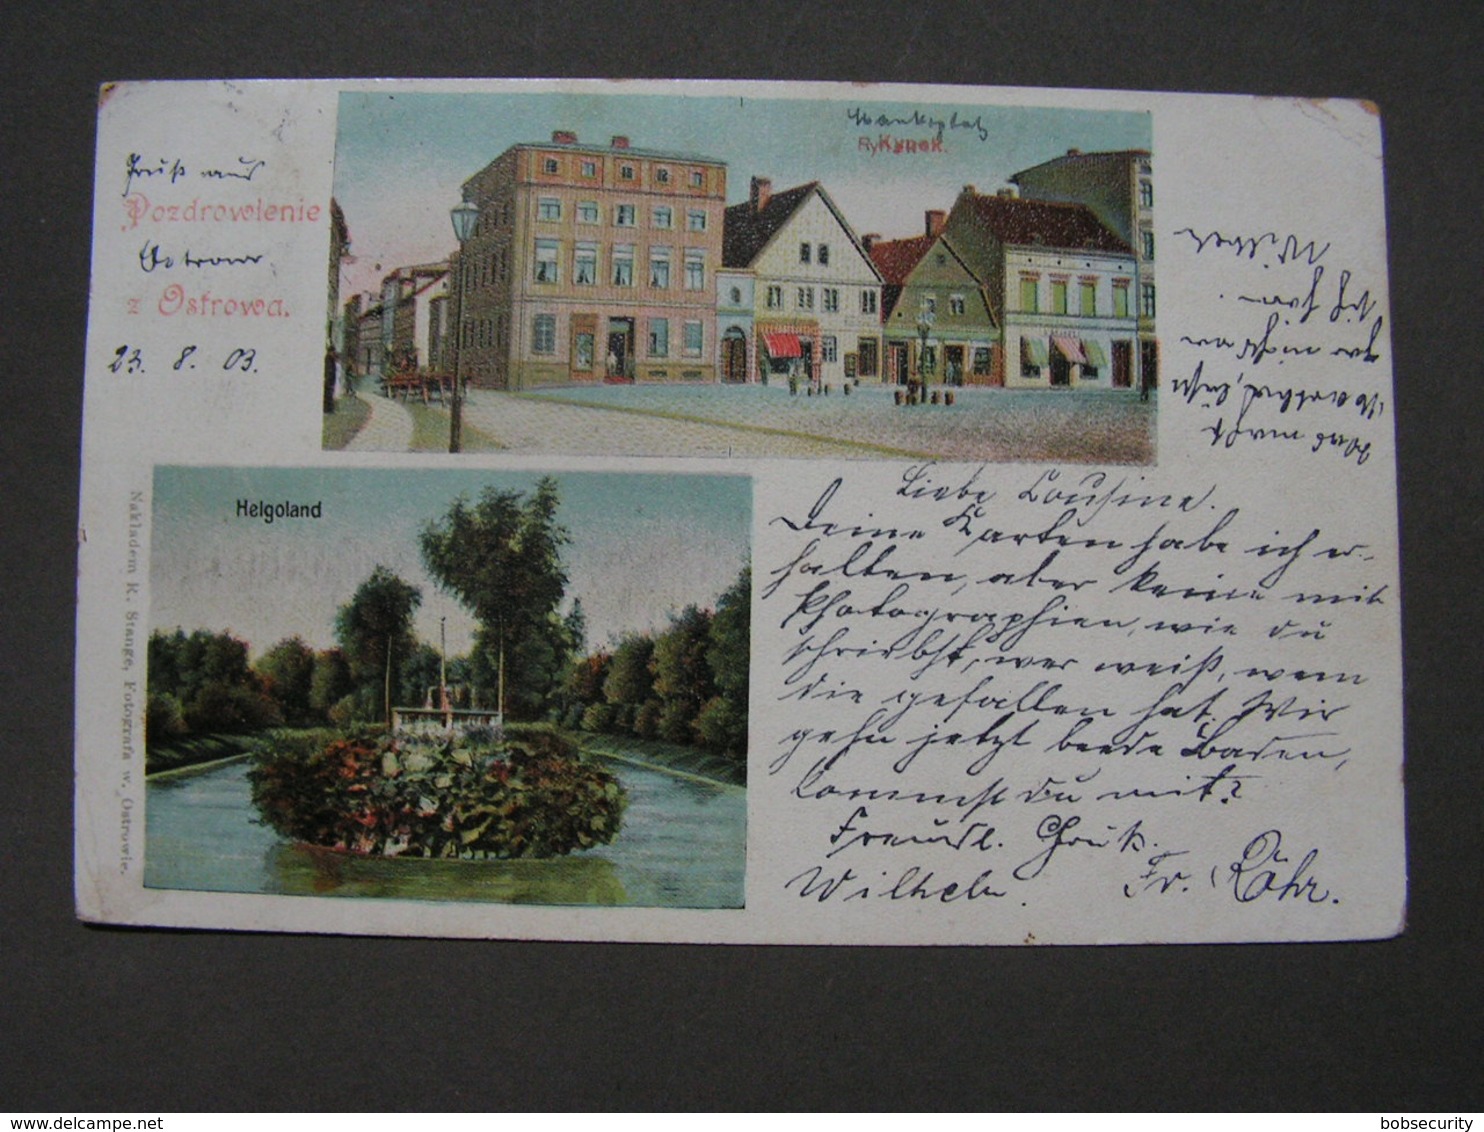 Gruß aus
Pozdrowienie
Ostrowo
z Ostrowa.
23. 8. 03.
Marktplatz
Rynek.
Helgoland
Nakladem K. Stange, Fotografa w. Ostrowie.
Liebe Cousine.
Deine Karten habe ich er-
halten, aber keine mit
Photographien, wie du
schriebst, wer weiß, wem
die gefallen hat. Wir
gehn jetzt beede Baden,
kommst du mit?
Freudl. Gruß.
Wilhelm. Fr. Röhr.
was macht
nicht
© www.delcampe.net
bobsecurity